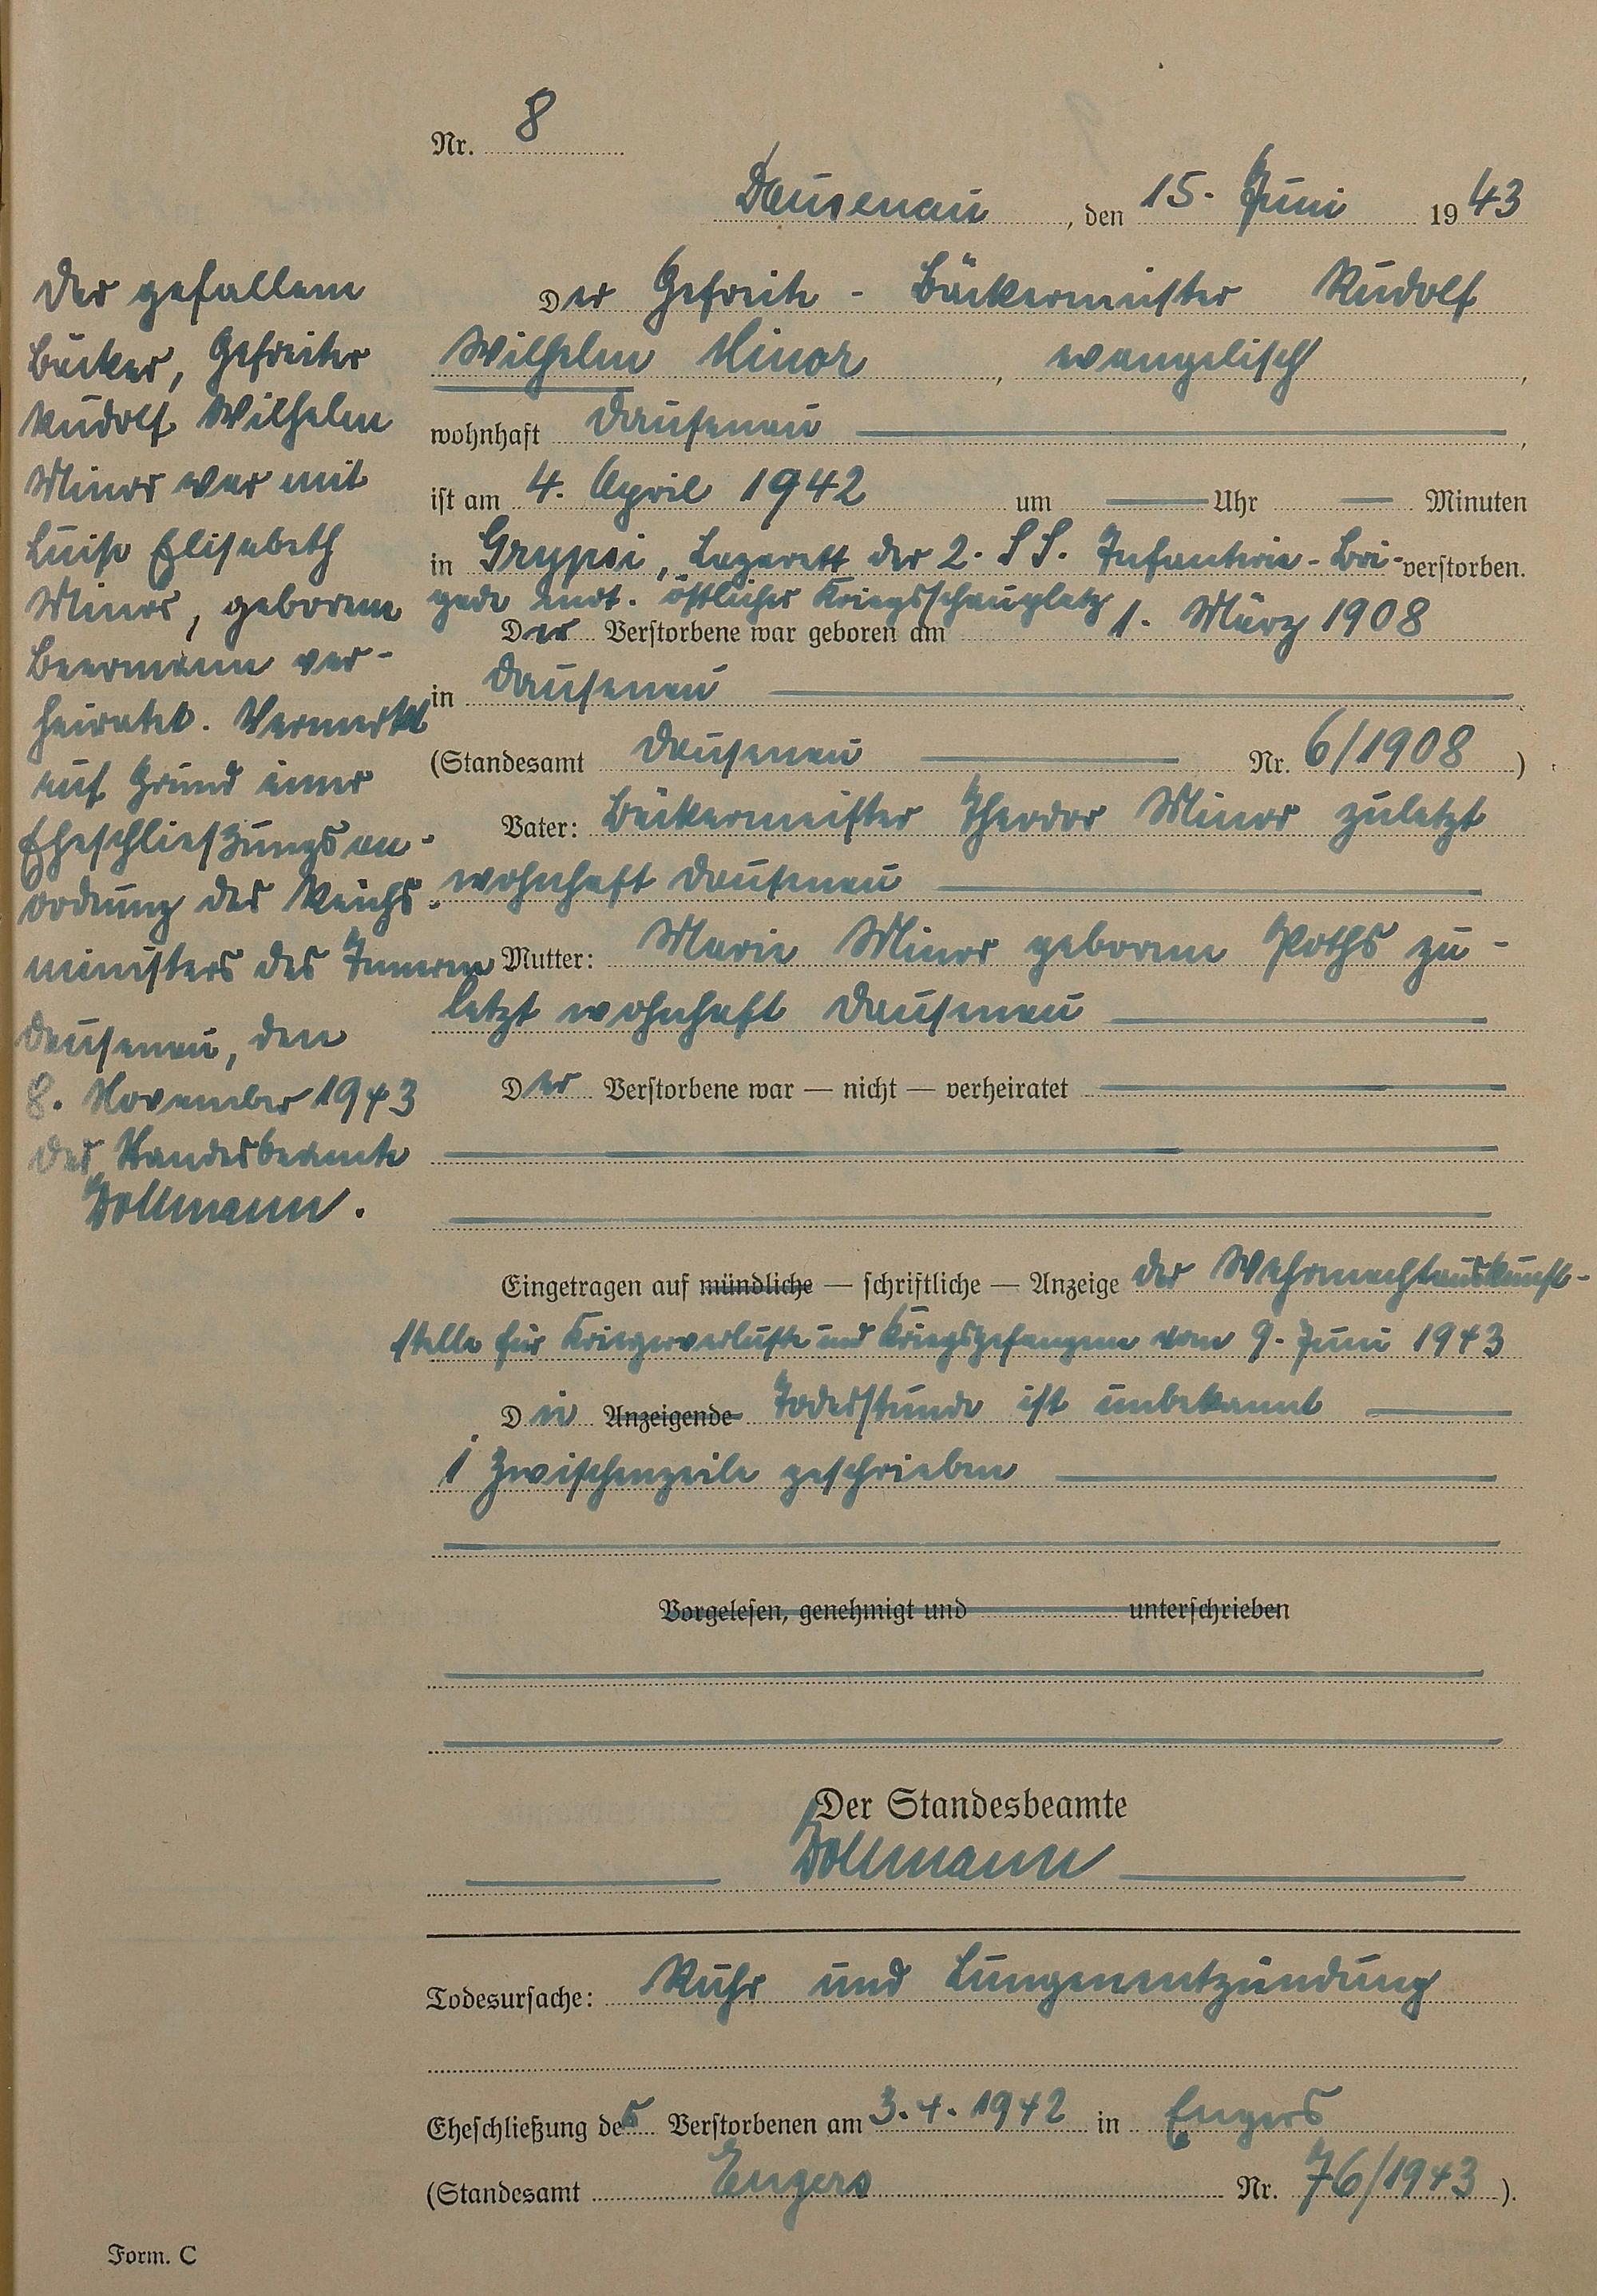 Nr. 8
Dausenau, den 15. Juni 1943
Der Gefreite - Bäckermeister Rudolf
Wilhelm Minor, evangelisch,
wohnhaft Dausenau,
ist am 4. April 1942 um Uhr Minuten
in Gryposi, Lazarett der 2. SS. Infanterie-Bri- verstorben.
gade mot. östlicher Kriegsschauplatz
Der Verstorbene war geboren am 1. März 1908
in Dausenau
(Standesamt Dausenau Nr. 6/1908)
Vater: Bäckermeister Theodor Minor zuletzt
wohnhaft Dausenau
Mutter: Marie Minor geborene Poths zu-
letzt wohnhaft Dausenau
Der Verstorbene war — nicht — verheiratet
Eingetragen auf mündliche — schriftliche — Anzeige der Wehrmachtauskunft-
stelle für Kriegerverluste und Kriegsgefangene vom 9. Juni 1943
Die Anzeigende Todesstunde ist unbekannt
1 Zwischenzeile geschrieben
Vorgelesen, genehmigt und unterschrieben
Der Standesbeamte
Dollmann
Todesursache: Ruhr und Lungenentzündung
Eheschließung des Verstorbenen am 3.4.1942 in Engers
(Standesamt Engers Nr. 76/1943).
Form. C
Der gefallene
Bäcker, Gefreiter
Rudolf Wilhelm
Minor war mit
Luise Elisabeth
Minor, geborene
Beermann ver-
heiratet. Vermerkt
auf Grund einer
Eheschließungsan-
ordnung des Reichs-
ministers des Inneren
Dausenau, den
8. November 1943
Der Standesbeamte
Dollmann.